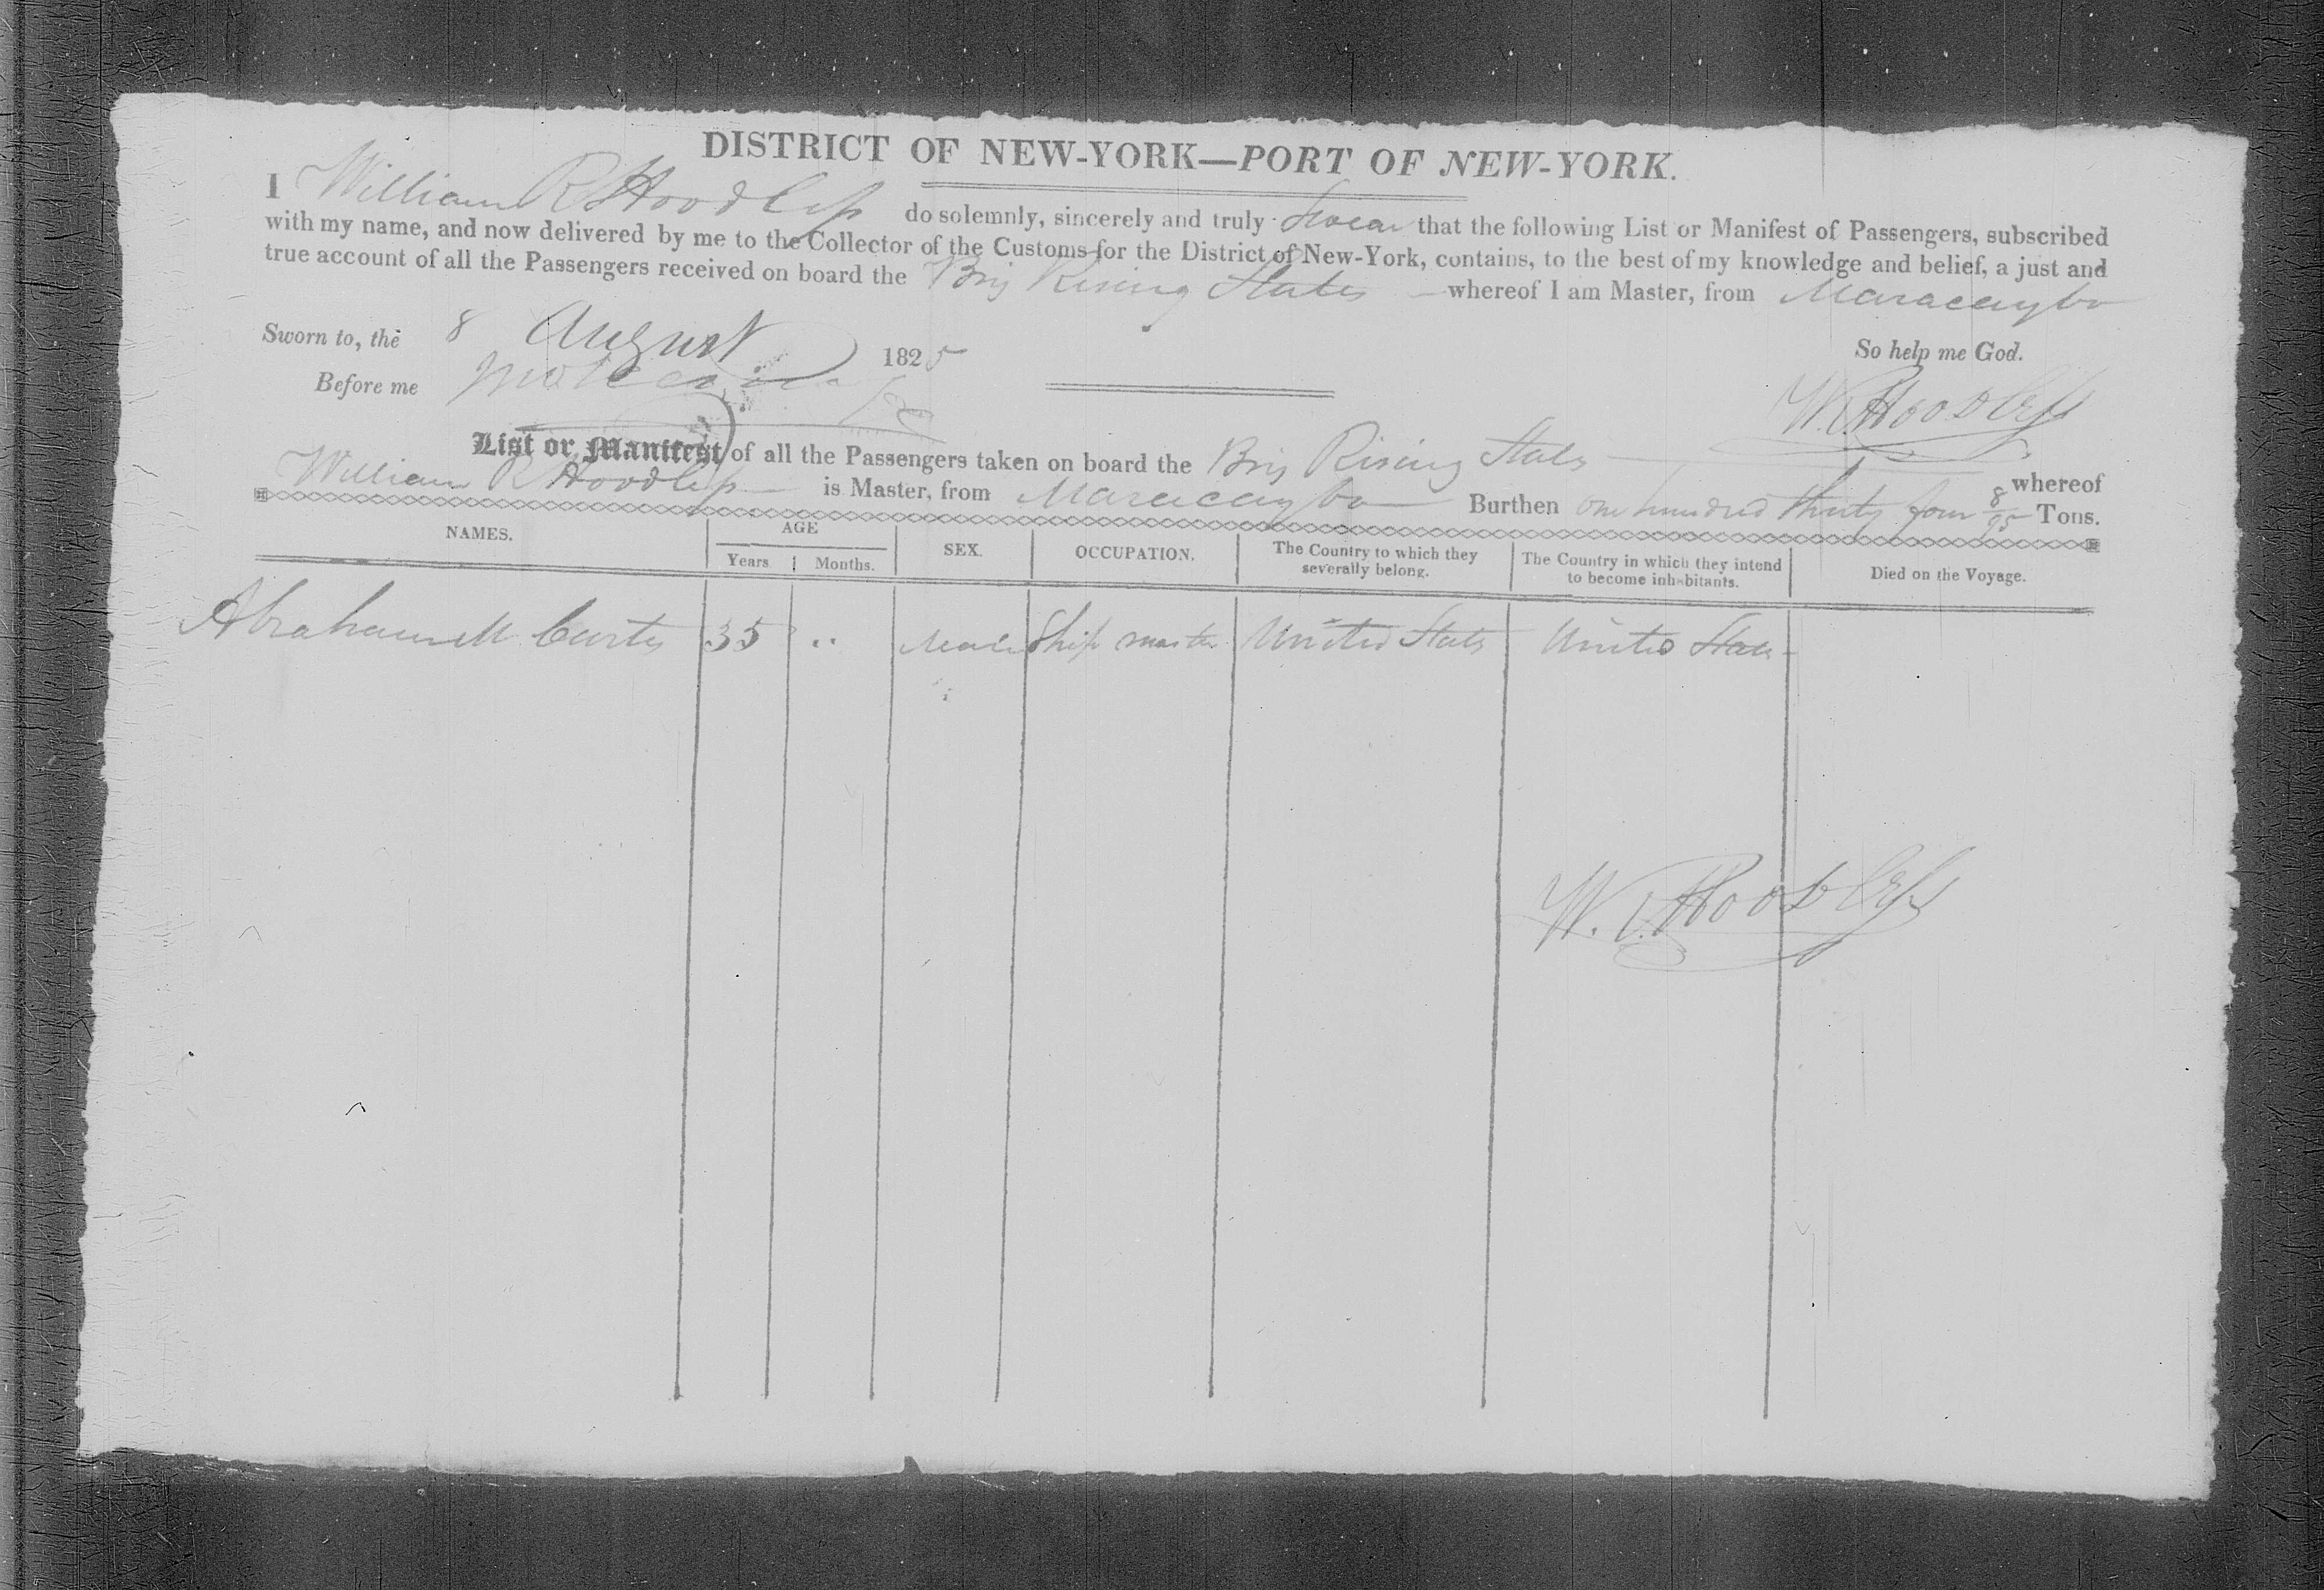 DISTRICT OF NEW-YORK—PORT OF NEW-YORK.
I William R Hoodless do solemnly, sincerely and truly swear that the following List or Manifest of Passengers, subscribed
with my name, and now delivered by me to the Collector of the Customs for the District of New-York, contains, to the best of my knowledge and belief, a just and
true account of all the Passengers received on board the Brig Rising States whereof I am Master, from Maracaybo
Sworn to, the 8 August 1825
So help me God.
Before me
W. R Hoodless
List or Manifest of all the Passengers taken on board the Brig Rising States whereof
William R Hoodless is Master, from Maracaybo Burthen one hundred thirty four 8/95 Tons.
NAMES. AGE Years Months. SEX. OCCUPATION. The Country to which they severally belong. The Country in which they intend to become inhabitants. Died on the Voyage.
Abraham M Curtis 35 " Male Ship master United States United States
W. R Hoodless